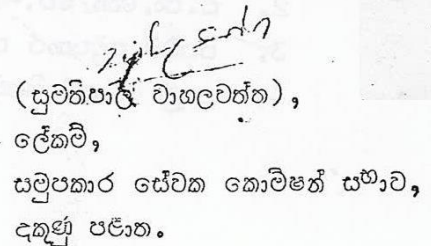 (සුමතිපාල වාහලවත්ත),
ලේකම්,
සමුපකාර සේවක කොමිෂන් සභාව,
දකුණු පළාත.